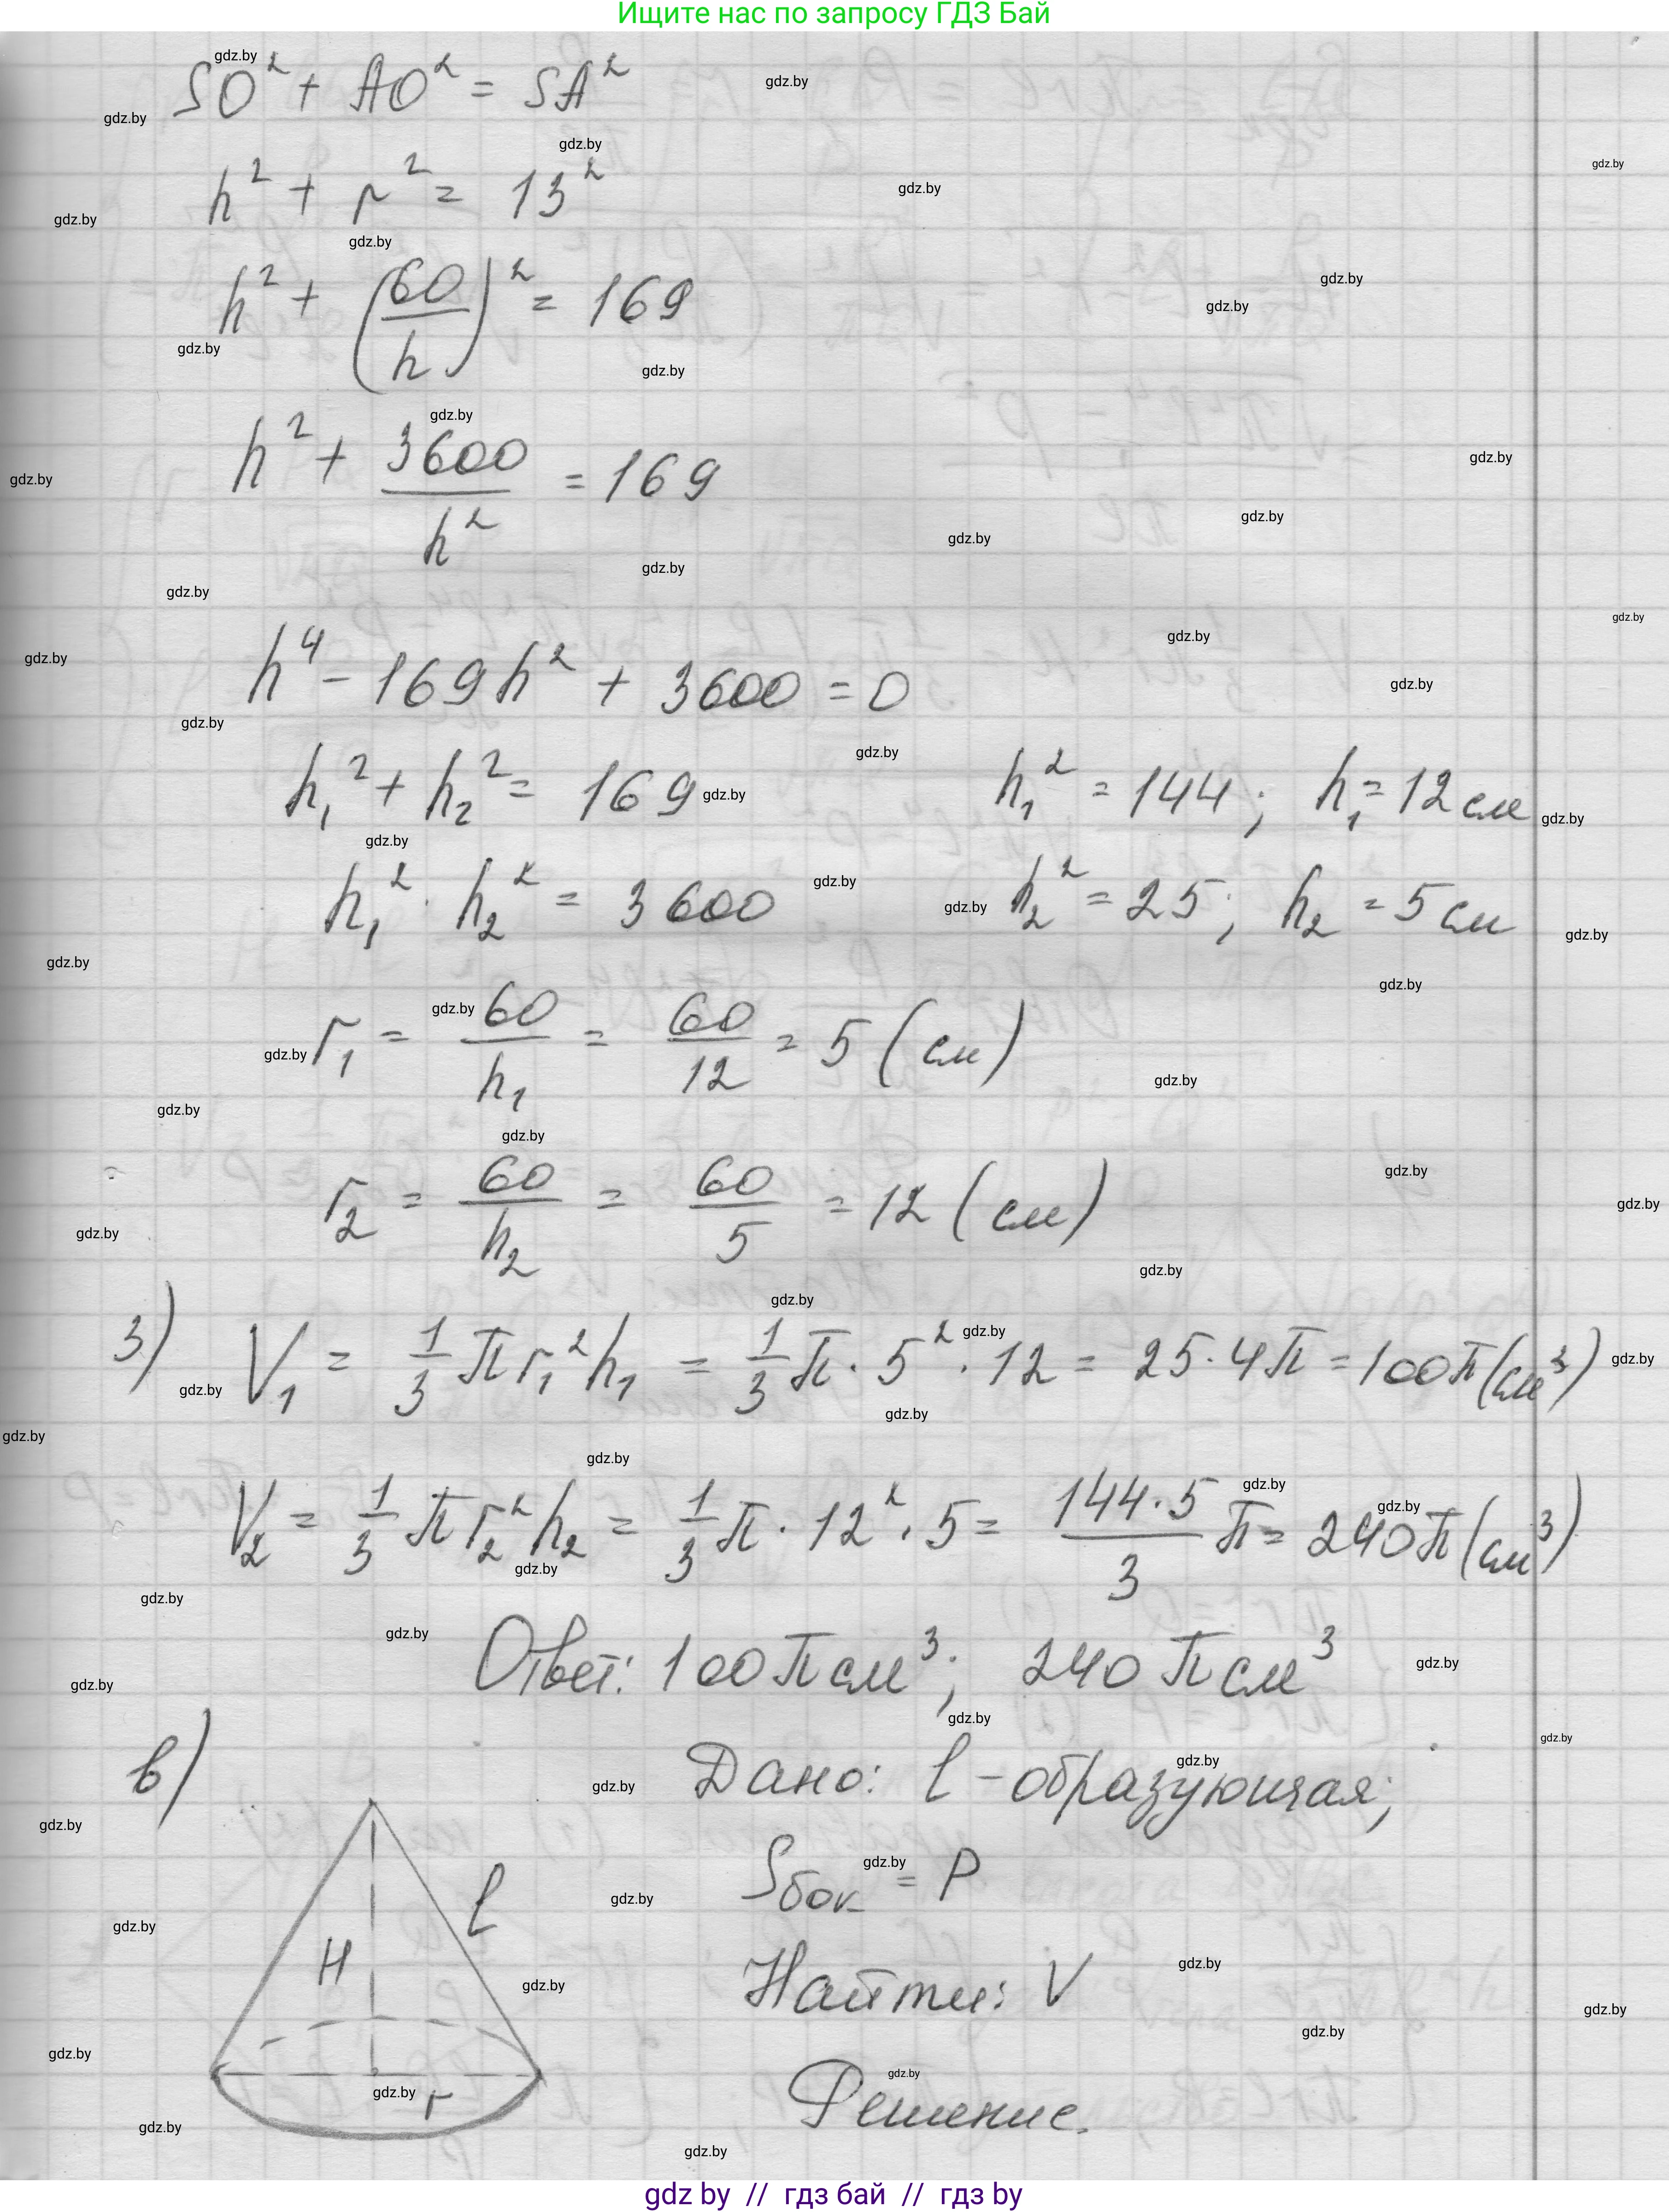 Ищите нас по запросу ГДЗ Бай
SO² + AO² = SA²
h² + r² = 13²
h² + (60/h)² = 169
h² + 3600/h² = 169
h⁴ - 169h² + 3600 = 0
h₁² + h₂² = 169 h₁² = 144; h₁ = 12 см
h₁² · h₂² = 3600 h₂² = 25; h₂ = 5 см
r₁ = 60/h₁ = 60/12 = 5 (см)
r₂ = 60/h₂ = 60/5 = 12 (см)
3) V₁ = 1/3 π r₁² h₁ = 1/3 π · 5² · 12 = 25 · 4π = 100π (см³)
V₂ = 1/3 π r₂² h₂ = 1/3 π · 12² · 5 = 144·5/3 π = 240π (см³)
Ответ: 100π см³; 240π см³
в) Дано: l - образующая;
Sбок = P
H l
Найти: V
r
Решение.
gdz by // гдз бай // гдз by